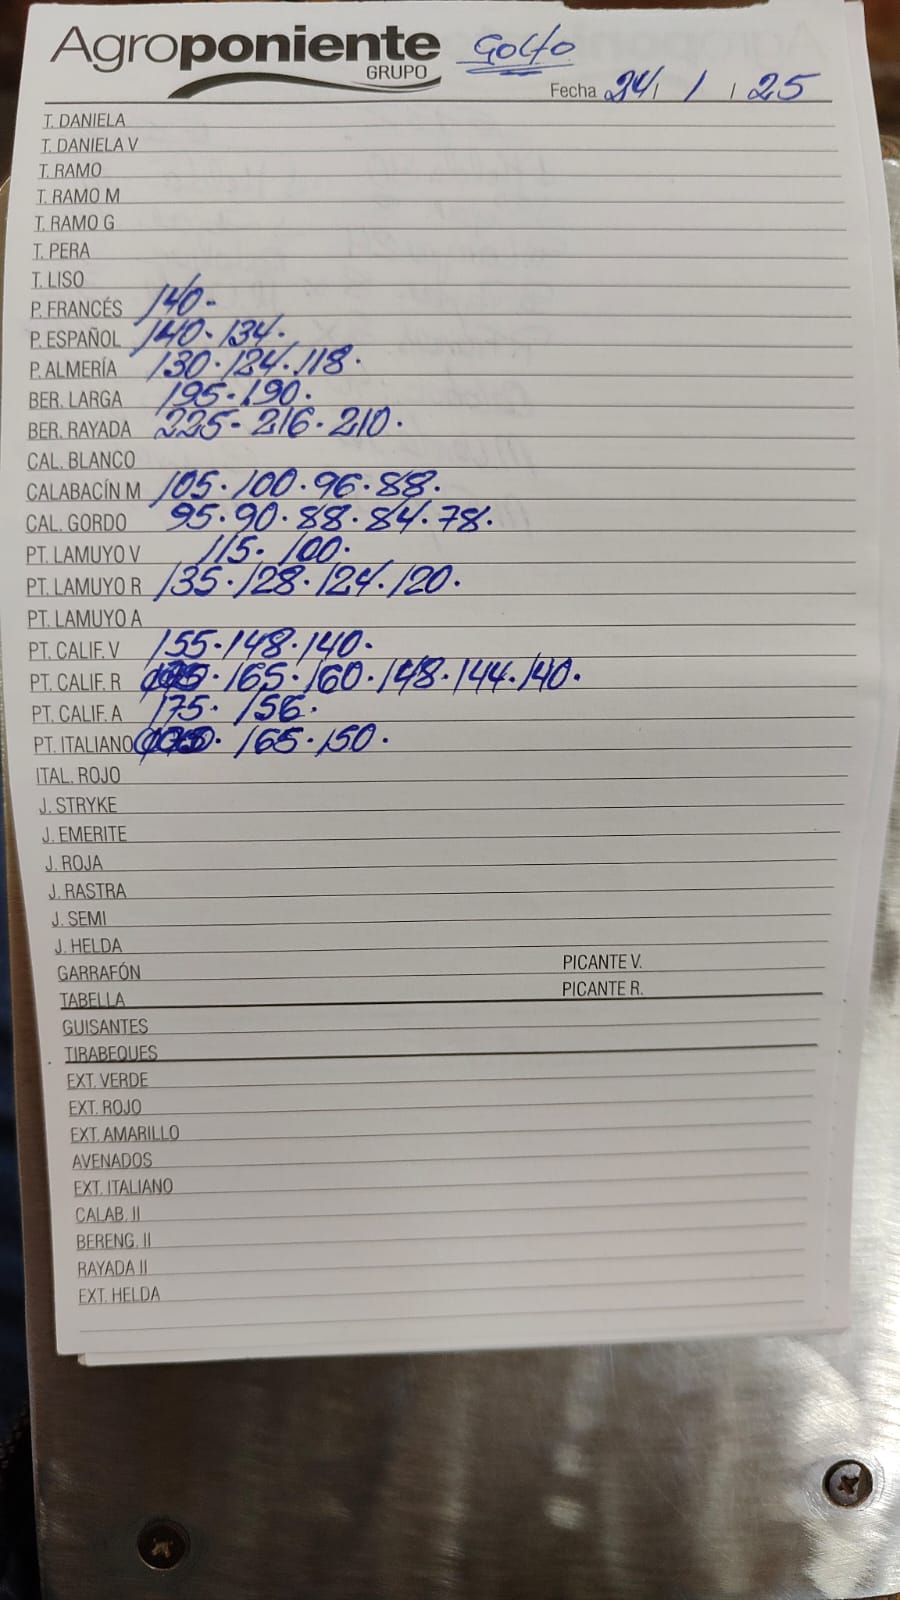 Agroponiente Golfo
GRUPO
Fecha 24 / 1 / 25
T. DANIELA
T. DANIELA V
T. RAMO
T. RAMO M
T. RAMO G
T. PERA
T. LISO
P. FRANCÉS 140.
P. ESPAÑOL 140. 134.
P. ALMERÍA 130. 124. 118.
BER. LARGA 195. 190.
BER. RAYADA 225- 216. 210.
CAL. BLANCO
CALABACÍN M 105. 100. 96. 88.
CAL. GORDO 95. 90. 88. 84. 78.
PT. LAMUYO V 115. 100.
PT. LAMUYO R 135. 128. 124. 120.
PT. LAMUYO A
PT. CALIF. V 155. 148. 140.
PT. CALIF. R 165. 160. 148. 144. 140.
PT. CALIF. A 175. 156.
PT. ITALIANO 165. 150.
ITAL. ROJO
J. STRYKE
J. EMERITE
J. ROJA
J. RASTRA
J. SEMI
J. HELDA
GARRAFÓN PICANTE V.
TABELLA PICANTE R.
GUISANTES
TIRABEQUES
EXT. VERDE
EXT. ROJO
EXT. AMARILLO
AVENADOS
EXT. ITALIANO
CALAB. II
BERENG. II
RAYADA II
EXT. HELDA